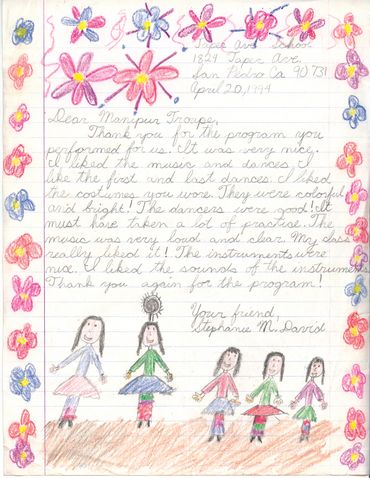 Taper Ave. School
1824 Taper Ave.
San Pedro Ca 90731
April 20, 1994
Dear Manipur Troupe,
Thank you for the program you
performed for us. It was very nice.
I liked the music and dances. I
like the first and last dances. I liked
the costumes you wore. They were colorful
and bright! The dancers were good! It
must have taken a lot of practice. The
music was very loud and clear. My class
really liked it! The instruments were
nice. I liked the sounds of the instruments.
Thank you again for the program!
Your friend,
Stephanie M. David